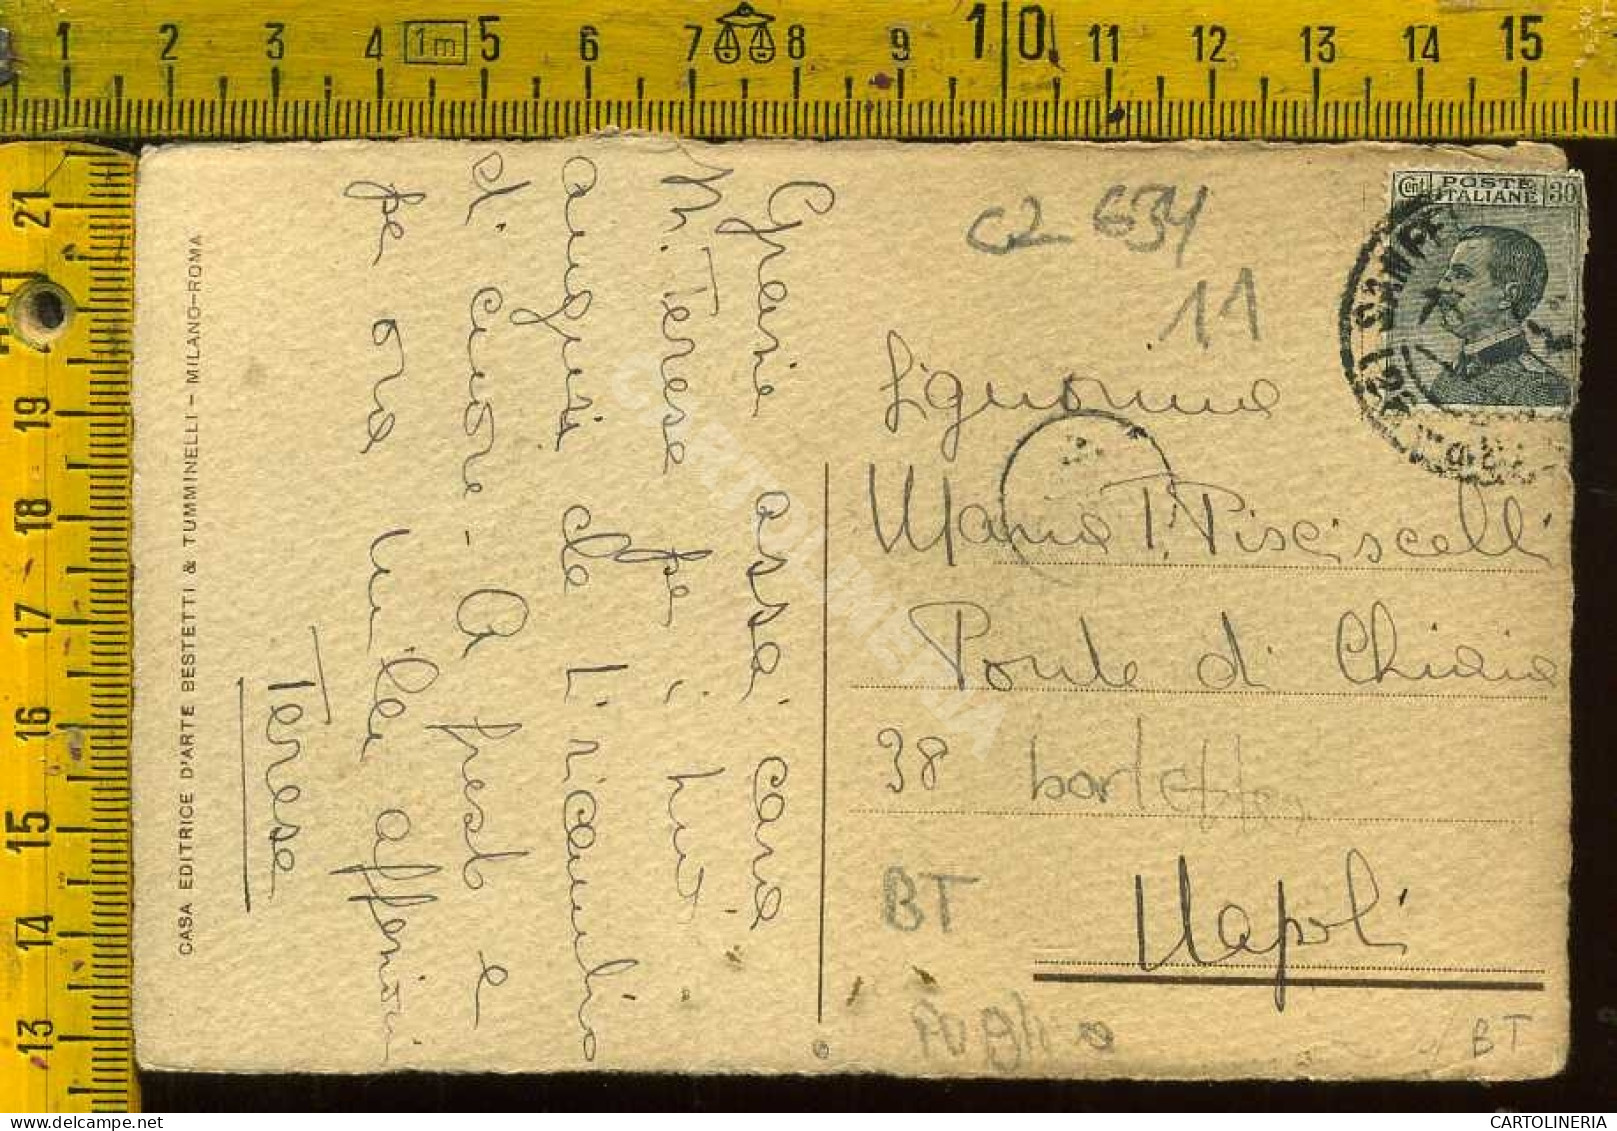 1 2 3 4 1m 5 6 7 8 9 10 11 12 13 14 15
21
19
18
17
16
15
14
13
CASA EDITRICE D'ARTE BESTETTI & TUMMINELLI – MILANO–ROMA
Grazie assai cara
M. Teresa pe i tuoi
auguri che ricambio
di cuore. A presto e
pe ora mille affezioni
Teresa
C2 634
11
Cent POSTE ITALIANE 30
Signorina
Maria T. Pisciscelli
Ponte di Chiaia
38
barletta
Napoli
BT
Puglia
BT
CARTOLINERIA
www.delcampe.net
CARTOLINERIA